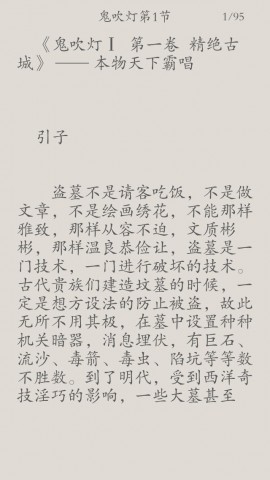 鬼吹灯第1节
1/95
《鬼吹灯Ⅰ 第一卷 精绝古
城》—— 本物天下霸唱
引子
盗墓不是请客吃饭，不是做
文章，不是绘画绣花，不能那样
雅致，那样从容不迫，文质彬
彬，那样温良恭俭让，盗墓是一
门技术，一门进行破坏的技术。
古代贵族们建造坟墓的时候，一
定是想方设法的防止被盗，故此
无所不用其极，在墓中设置种种
机关暗器，消息埋伏，有巨石、
流沙、毒箭、毒虫、陷坑等等数
不胜数。到了明代，受到西洋奇
技淫巧的影响，一些大墓甚至